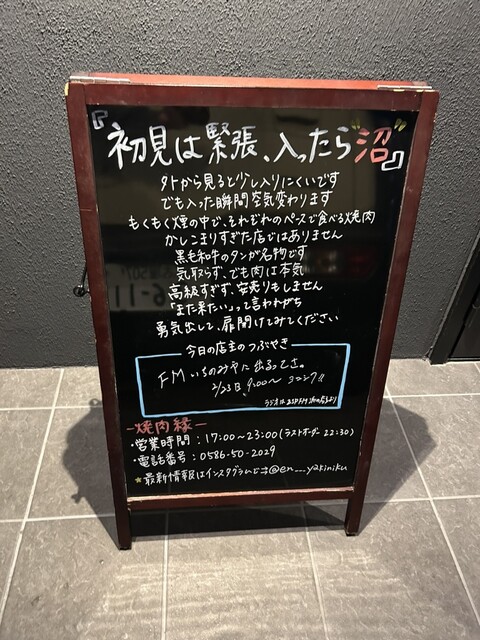 『初見は緊張、入ったら"沼"』
外から見ると少し入りにくいです
でも入った瞬間空気変わります
もくもく煙の中で、それぞれのペースで食べる焼肉
かしこまりすぎた店ではありません
黒毛和牛のタンが名物です
気取らず、でも肉は本気
高級すぎず、安売りもしません
「また来たい」って言われがち
勇気出して、扉開けてみてください
今日の店主のつぶやき
FMいちのみやに出るってさ。
2/23日 9:00〜
ラジオは
ー焼肉縁ー
・営業時間：17:00〜23:00(ラストオーダー 22:30)
・電話番号：0586-50-2029
★最新情報はインスタグラムにて⇒@en___yakiniku